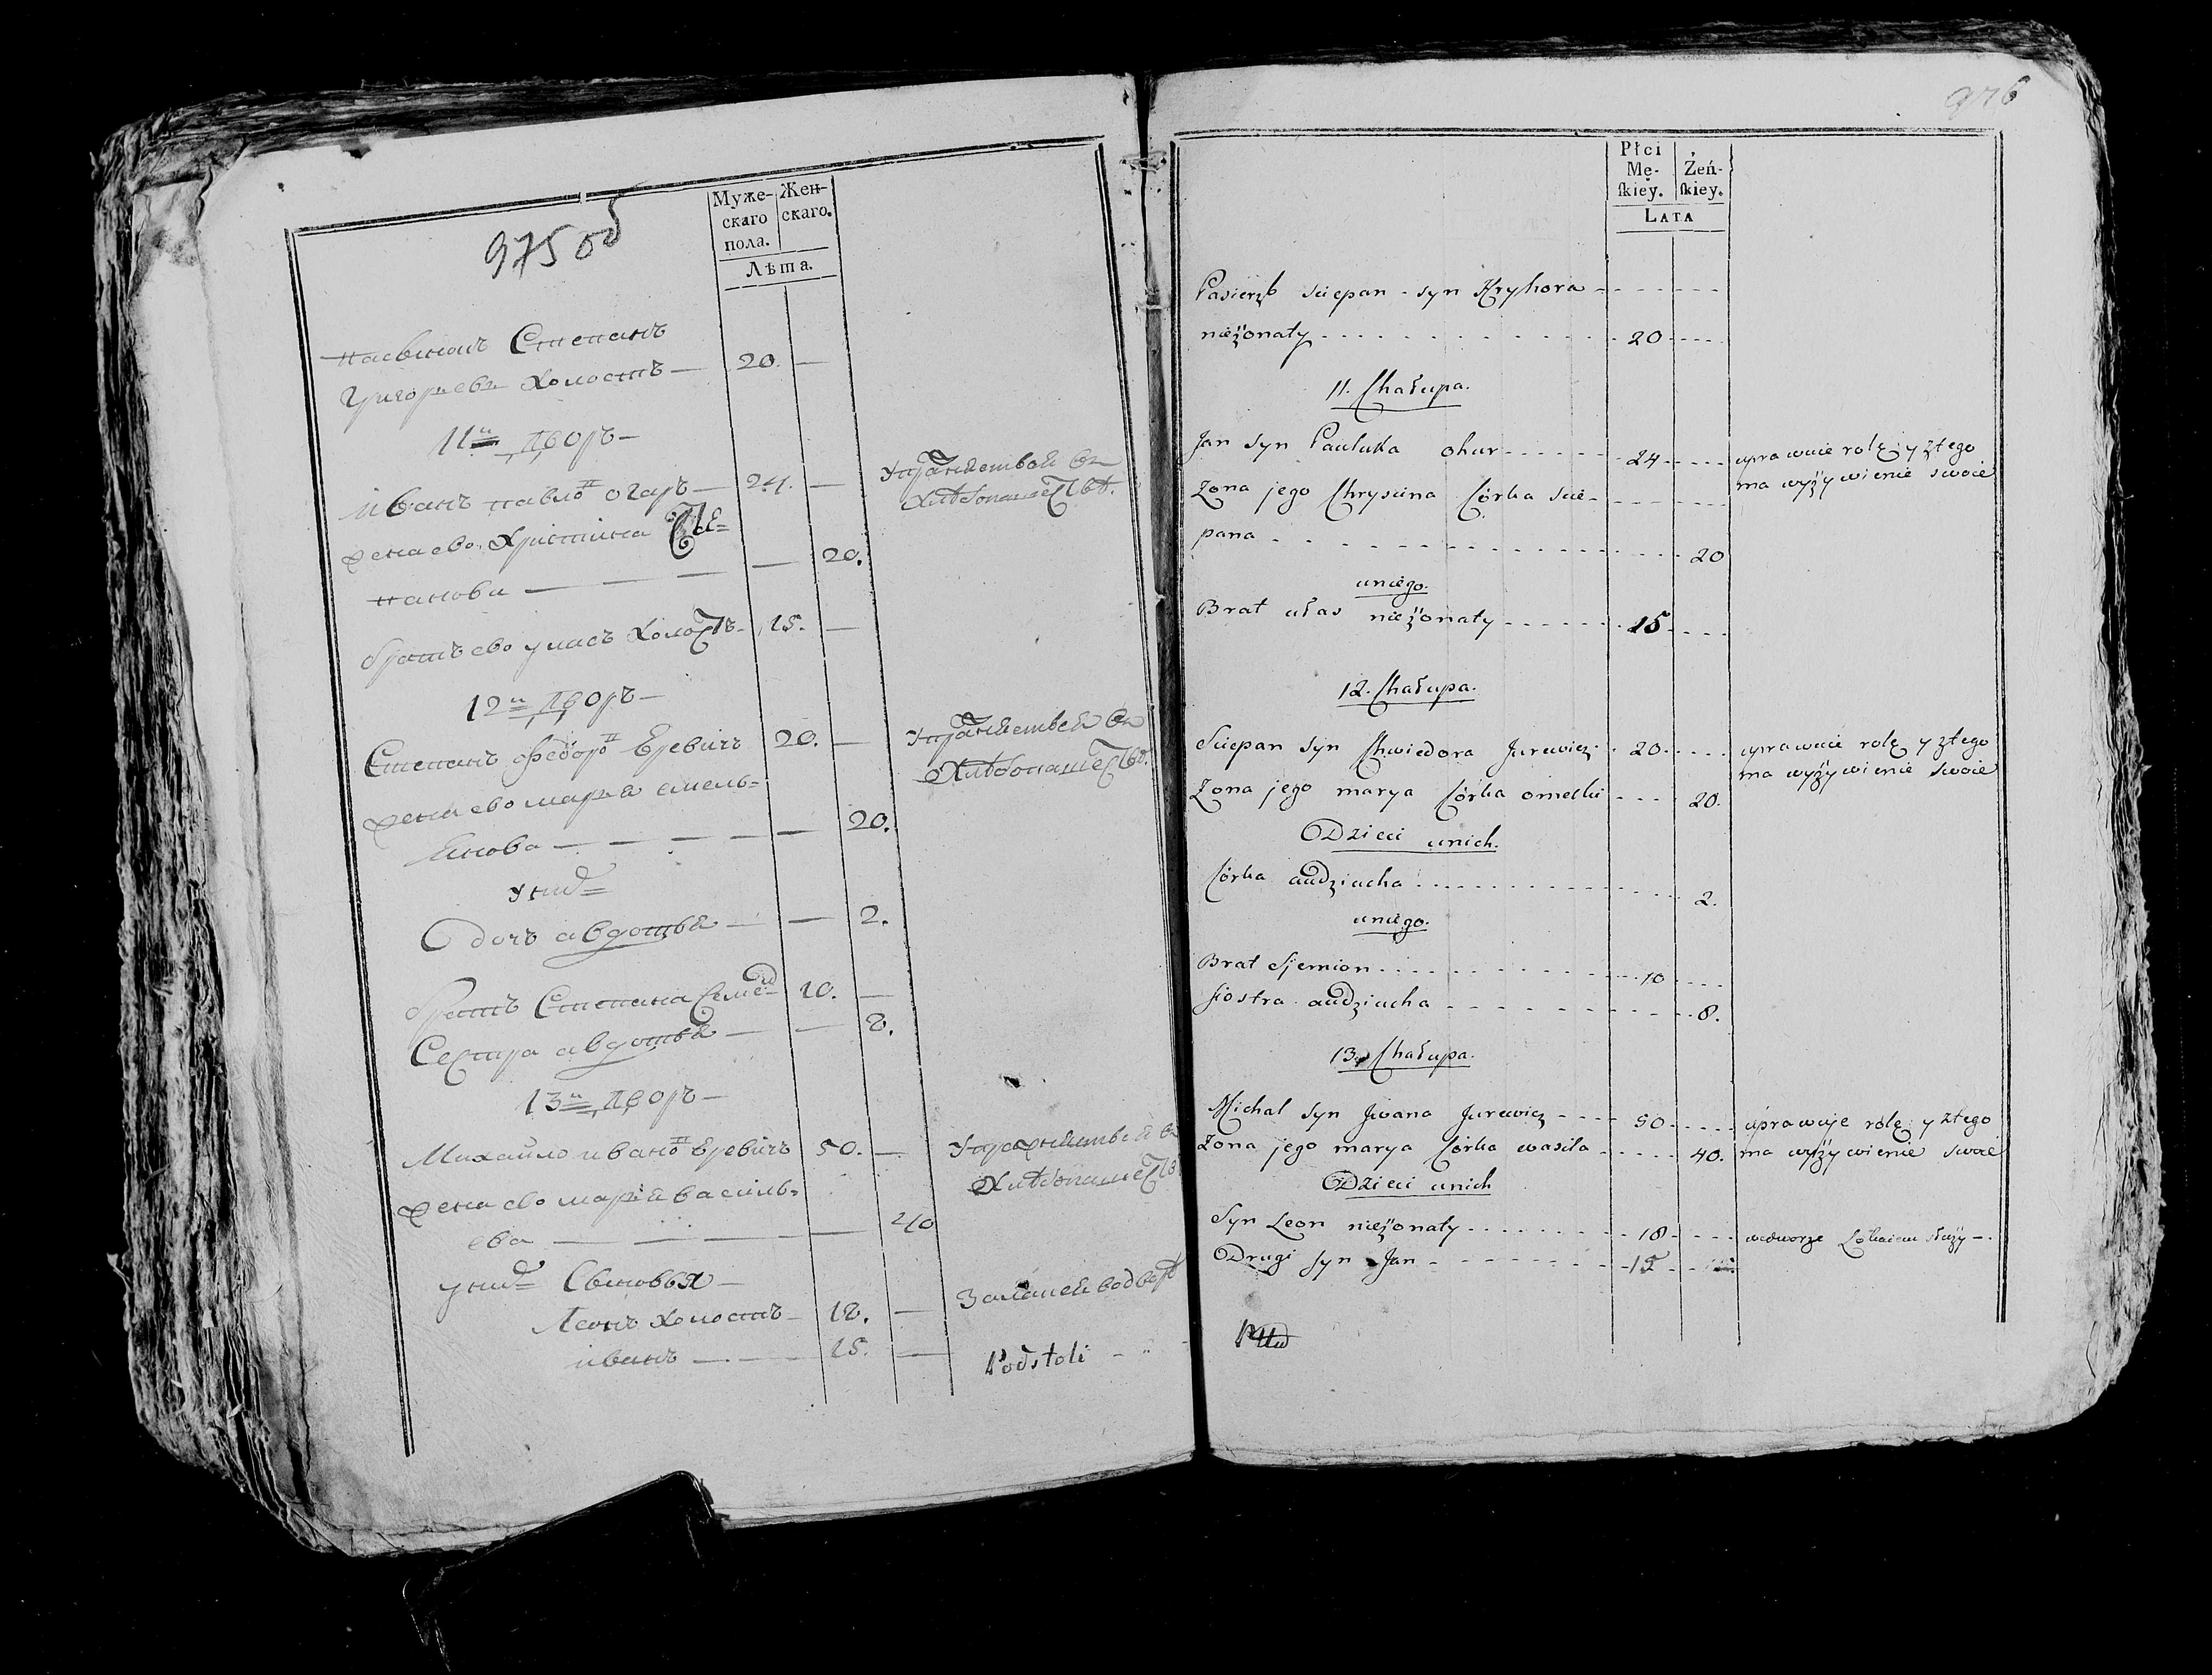 975 об
Муже-
скаго
пола.
Жен-
скаго.
Лѣта.
пасынокъ Степанъ
Григорьевъ холостъ — 20. —
11й дворъ —
иванъ павловъ огаръ — 24. — упражняетьса въ
хлѣбопашествѣ.
жена ево христина Сте=
панова — — — 20.
братъ ево уласъ холостъ — 15. —
12й дворъ —
Степанъ федоровъ Еревичъ 20. — упражняетьса въ
хлѣбопашествѣ.
жена ево марья емель=
янова — — — 20.
у нихъ
дочь авдотья — — 2.
братъ Степана Семенъ 10. —
Сестра авдотья — — 8.
13й дворъ —
Михайло ивановъ Еревичъ 50. — упражняетьса въ
хлѣбопашествѣ
жена ево марья василь=
ева — — — 40
у нихъ Сыновья —
Леонъ холостъ — 18. —
иванъ — — 15. — Podstoli
976
Płci
Mę-
skiey.
Żeń-
skiey.
LATA
Pasierzb sciepan syn Hryhora
nieżonaty 20
11. Chałupa.
Jan syn Pauluka ohur 24 uprawuie rolę y ztego
ma wyżywienie swoie
Zona jego Chryscina Córka scie-
pana 20
uniego.
Brat ułas nieżonaty 15
12. Chałupa.
Sciepan syn Chwiedora Jurewicz 20 uprawuie rolę y ztego
ma wyżywienie swoie
Zona jego marya Córka omelki 20.
Dzieci unich.
Córka audziucha 2.
uniego.
Brat Sjemion 10
siostra audziucha 8.
13. Chałupa.
Michal syn Jwana Jurewicz 50 uprawuje rolę y ztego
Zona jego marya Córka wasila 40. ma wyżywienie swoie
Dzieci unich
Syn Leon nieżonaty 18 wedworze Lokaiem służy —
Drugi syn Jan 15